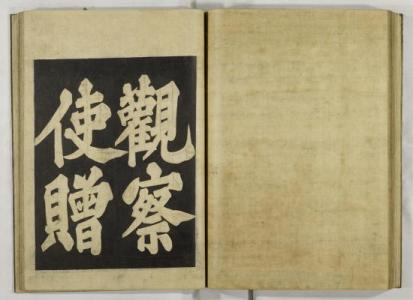 觀察
使贈